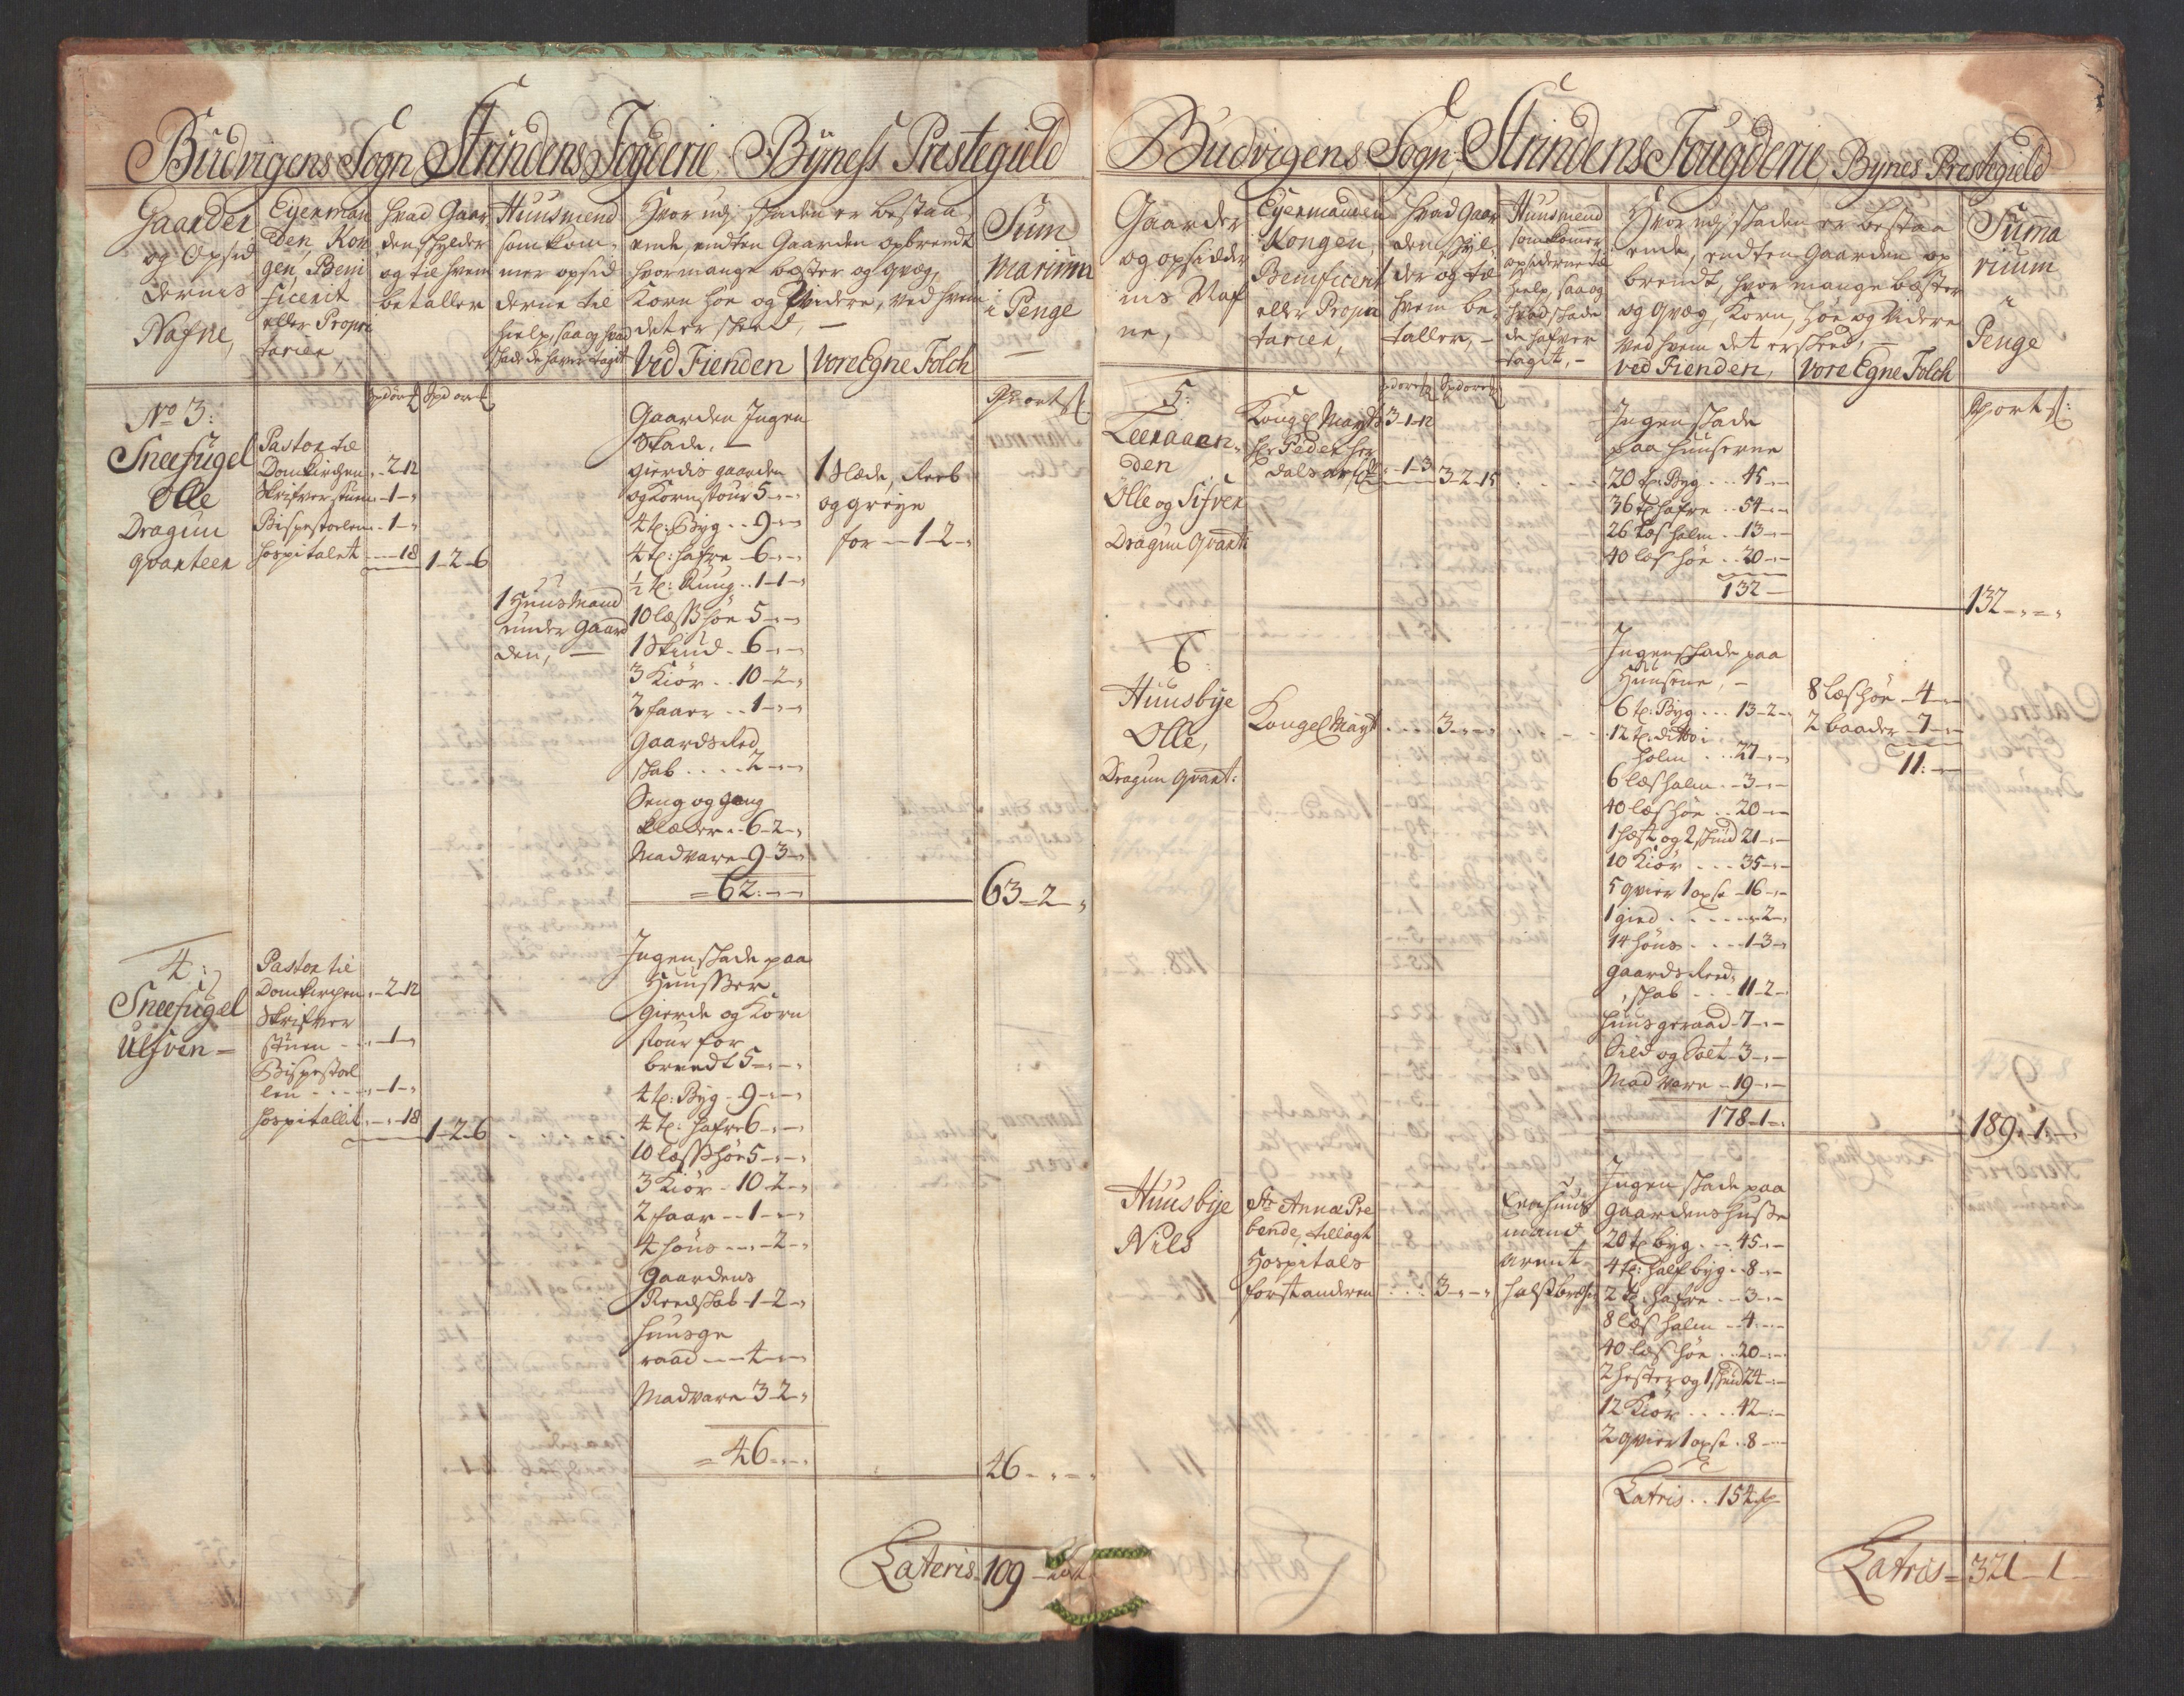 Budvigens Sogn Strindens Fogderie Byness Prestegield
Gaarder
og Opsid
dernis
Nafne,
Eyerman
den, Kon
gen, Beni
ficerit
eller Propri
tarien
hvad Gaar
den skylder
og til hvem
betaller
Huusmend
som kom-
mer opsid
derne til
hielp, saa og hvad
skade de hafver taget
Hvor udj skaden er bestaa
ende, endten Gaarden opbrendt
hvor mange bæster og qvæg,
Korn höe og Videre, ved hvem
det er skeed, —
Ved Fienden | Vore Egne Folch
Sum
marium
i Penge
No 3:
Sneefugel
Olle
Dragun
qvarteer
Pastor til
Domkirchen - 2-12
Skrifverstuen - 1 -
Bispestoelen - 1 -
Hospitalet - 18
1-2-6
1 Huusmand
under gaard
den, —
Gaarden Ingen
Skade, —
gierdis gaarden
og Kornstour 5 - -
4 t: Byg - - 9 - -
4 t: hafre - 6 - -
½ t: Ruug - - 1-1-
10 læss höe 5 - -
1 Skiud - 6 - -
3 Kiör - - 10-2-
2 faar - - 1 - -
Gaards Red
skab . . . . 2 - -
Seng og gang
klæder - 6-2-
Madvare - 9-3-
= 62: - -
1 Slæde, Reeb
og greye
for - 1-2-
63-2-
4:
Sneefugel
Ulfven =
Pastor til
Domkirchen - 2-12
Skrifver
stuen - - 1 -
Bispestoel
len - - - 1 -
Hospitallit - 18
1-2-6
Ingen skade paa
Huusser
gierde og Korn
stour for
brendt 5 - -
4 t: Byg - 9 - -
4 t: hafre 6 - -
10 læss höe 5 - -
3 Kiör - 10-2-
2 faar - - 1 - -
4 höns - - - 2 -
Gaardens
Reedskab - 1-2-
huusge
raad - - 4 - -
Madvare 3-2-
= 46 - -
46 - - -
Lateris 109
Budvigens Sogn, Strindens Fougderie, Bynes Prestegield
Gaarder
og opsidder
nis Naf
ne,
Eyermanden
Kongen
Benificerit
eller Propri
tarien,
hvad Gaar
den skyl-
der og til
hvem be-
taller, -
Huusmend
som kommer
opsiderne til
hielp, saa og
hvad skade
de hafver
tagit, -
Hvor udj skaden er bestaa
ende, endten Gaarden op
brendt, hvor mange bæster
og qvæg, Korn, höe og Videre
ved hvem det er skeed, —
ved Fienden, | Vore Egne Folch
Summa
rium
i
Penge
5:
Leeraaen-
den
Olle og Sifver
Dragun Qvart:
Kongel Mayts 3-1-12
- 1-3
3-2-15
Ingen skade
paa huuserne
20 t: Byg . . 45 - -
36 t: hafre . . 54 - -
26 læs halm - 13 - -
40 læs höe . . 20 - -
132 -
132 - - -
6:
Huusbye
Olle,
Dragun Qvart:
Kongel Mayt
3 - -
Ingen skade paa
Huusene, —
6 t: Byg . . . 13-2-
12 t: ditto i
halm . . . 27 - -
6 læs halm - 3 - -
40 læs höe . . 20 - -
1 hæst og 2 skiud 21 - -
10 Kiör . . . 35 - -
5 qvier 1 oxse - 16 - -
1 gied . . . . . - 2 -
14 höns . . . 1-3-
gaards Reed-
skab . . . 11-2-
huusgeraad - 7 - -
Sild og Salt - 3 - -
Mad vare - 19 - -
178-1-
8 læs höe - 4 - -
2 baader - 7 - -
11: -
189-1-
Huusbye
Nils
Ste Annæ Pre
bende, tillagt
Hospitals
forstanderen
3 - -
Een huus
mand
Arent
Ingen skade paa
gaardens husse
20 t: byg . . 45 - -
4 t: half byg - 8 - -
2 t: hafre . - 3 - -
8 læs halm - 4 - -
40 læs höe . . 20 - -
2 hester og 1 skiud 24 - -
12 Kiör . . . 42 - -
2 qvier 1 oxse . 8 - -
Latris . . 154
Latris = 321-1-